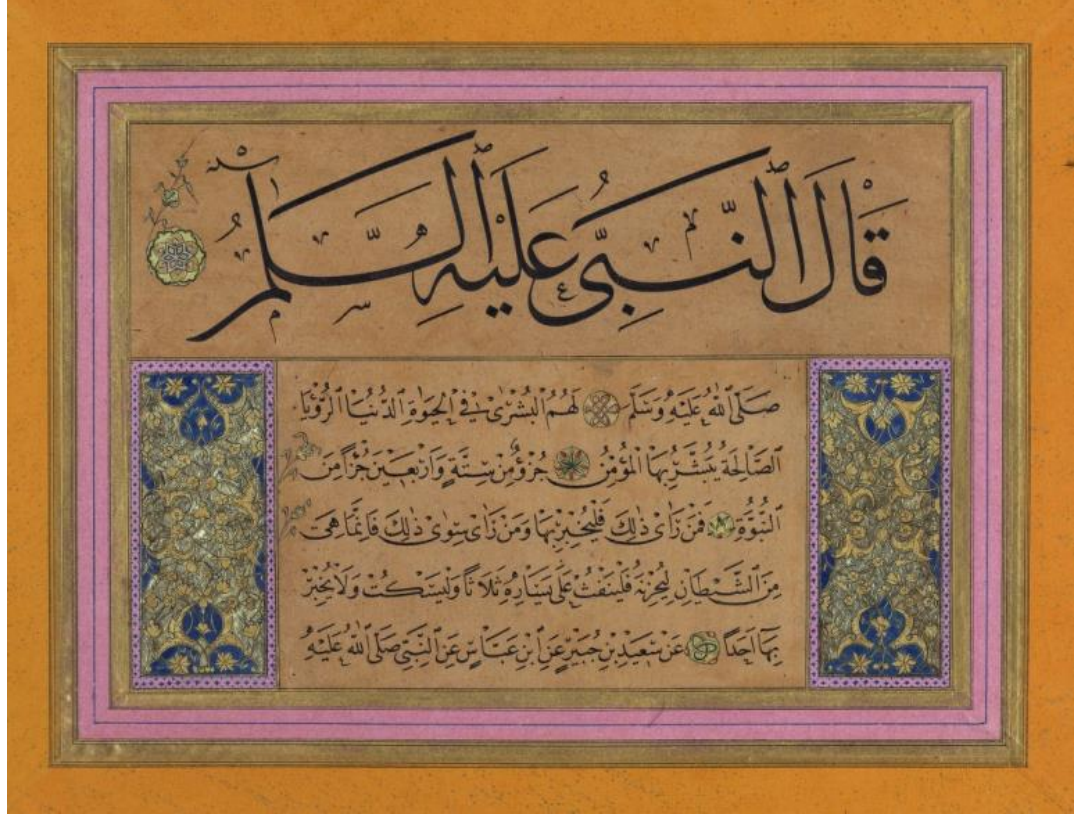 قَالَ ٱلنَّبِىُّ عَلَيْهِ ٱلسَّلَمُ
صَلَّى ٱللّٰهُ عَلَيْهِ وَسَلَّمَ لَهُمُ الْبُشْرٰى فِى الْحَيٰوةِ الدُّنْيَا الرُّؤْيَا
الصَّالِحَةُ يُبَشَّرُ بِهَا الْمُؤْمِنُ جُزْؤٌ مِنْ سِتَّةٍ وَاَرْبَعِينَ جُزْأً مِنَ
النُّبُوَّةِ فَمَنْ رَاٰى ذٰلِكَ فَلْيُخْبِرْ بِهَا وَمَنْ رَاٰى سِوٰى ذٰلِكَ فَاِنَّمَا هِىَ
مِنَ الشَّيْطَانِ لِيُحْزِنَهُ فَلْيَنْفُثْ عَلٰى يَسَارِهِ ثَلَاثًا وَلْيَسْكُتْ وَلَا يُخْبِرْ
بِهَا اَحَدًا عَنْ سَعِيدِ بْنِ جُبَيْرٍ عَنِ ابْنِ عَبَّاسٍ عَنِ النَّبِىِّ صَلَّى اللّٰهُ عَلَيْهِ